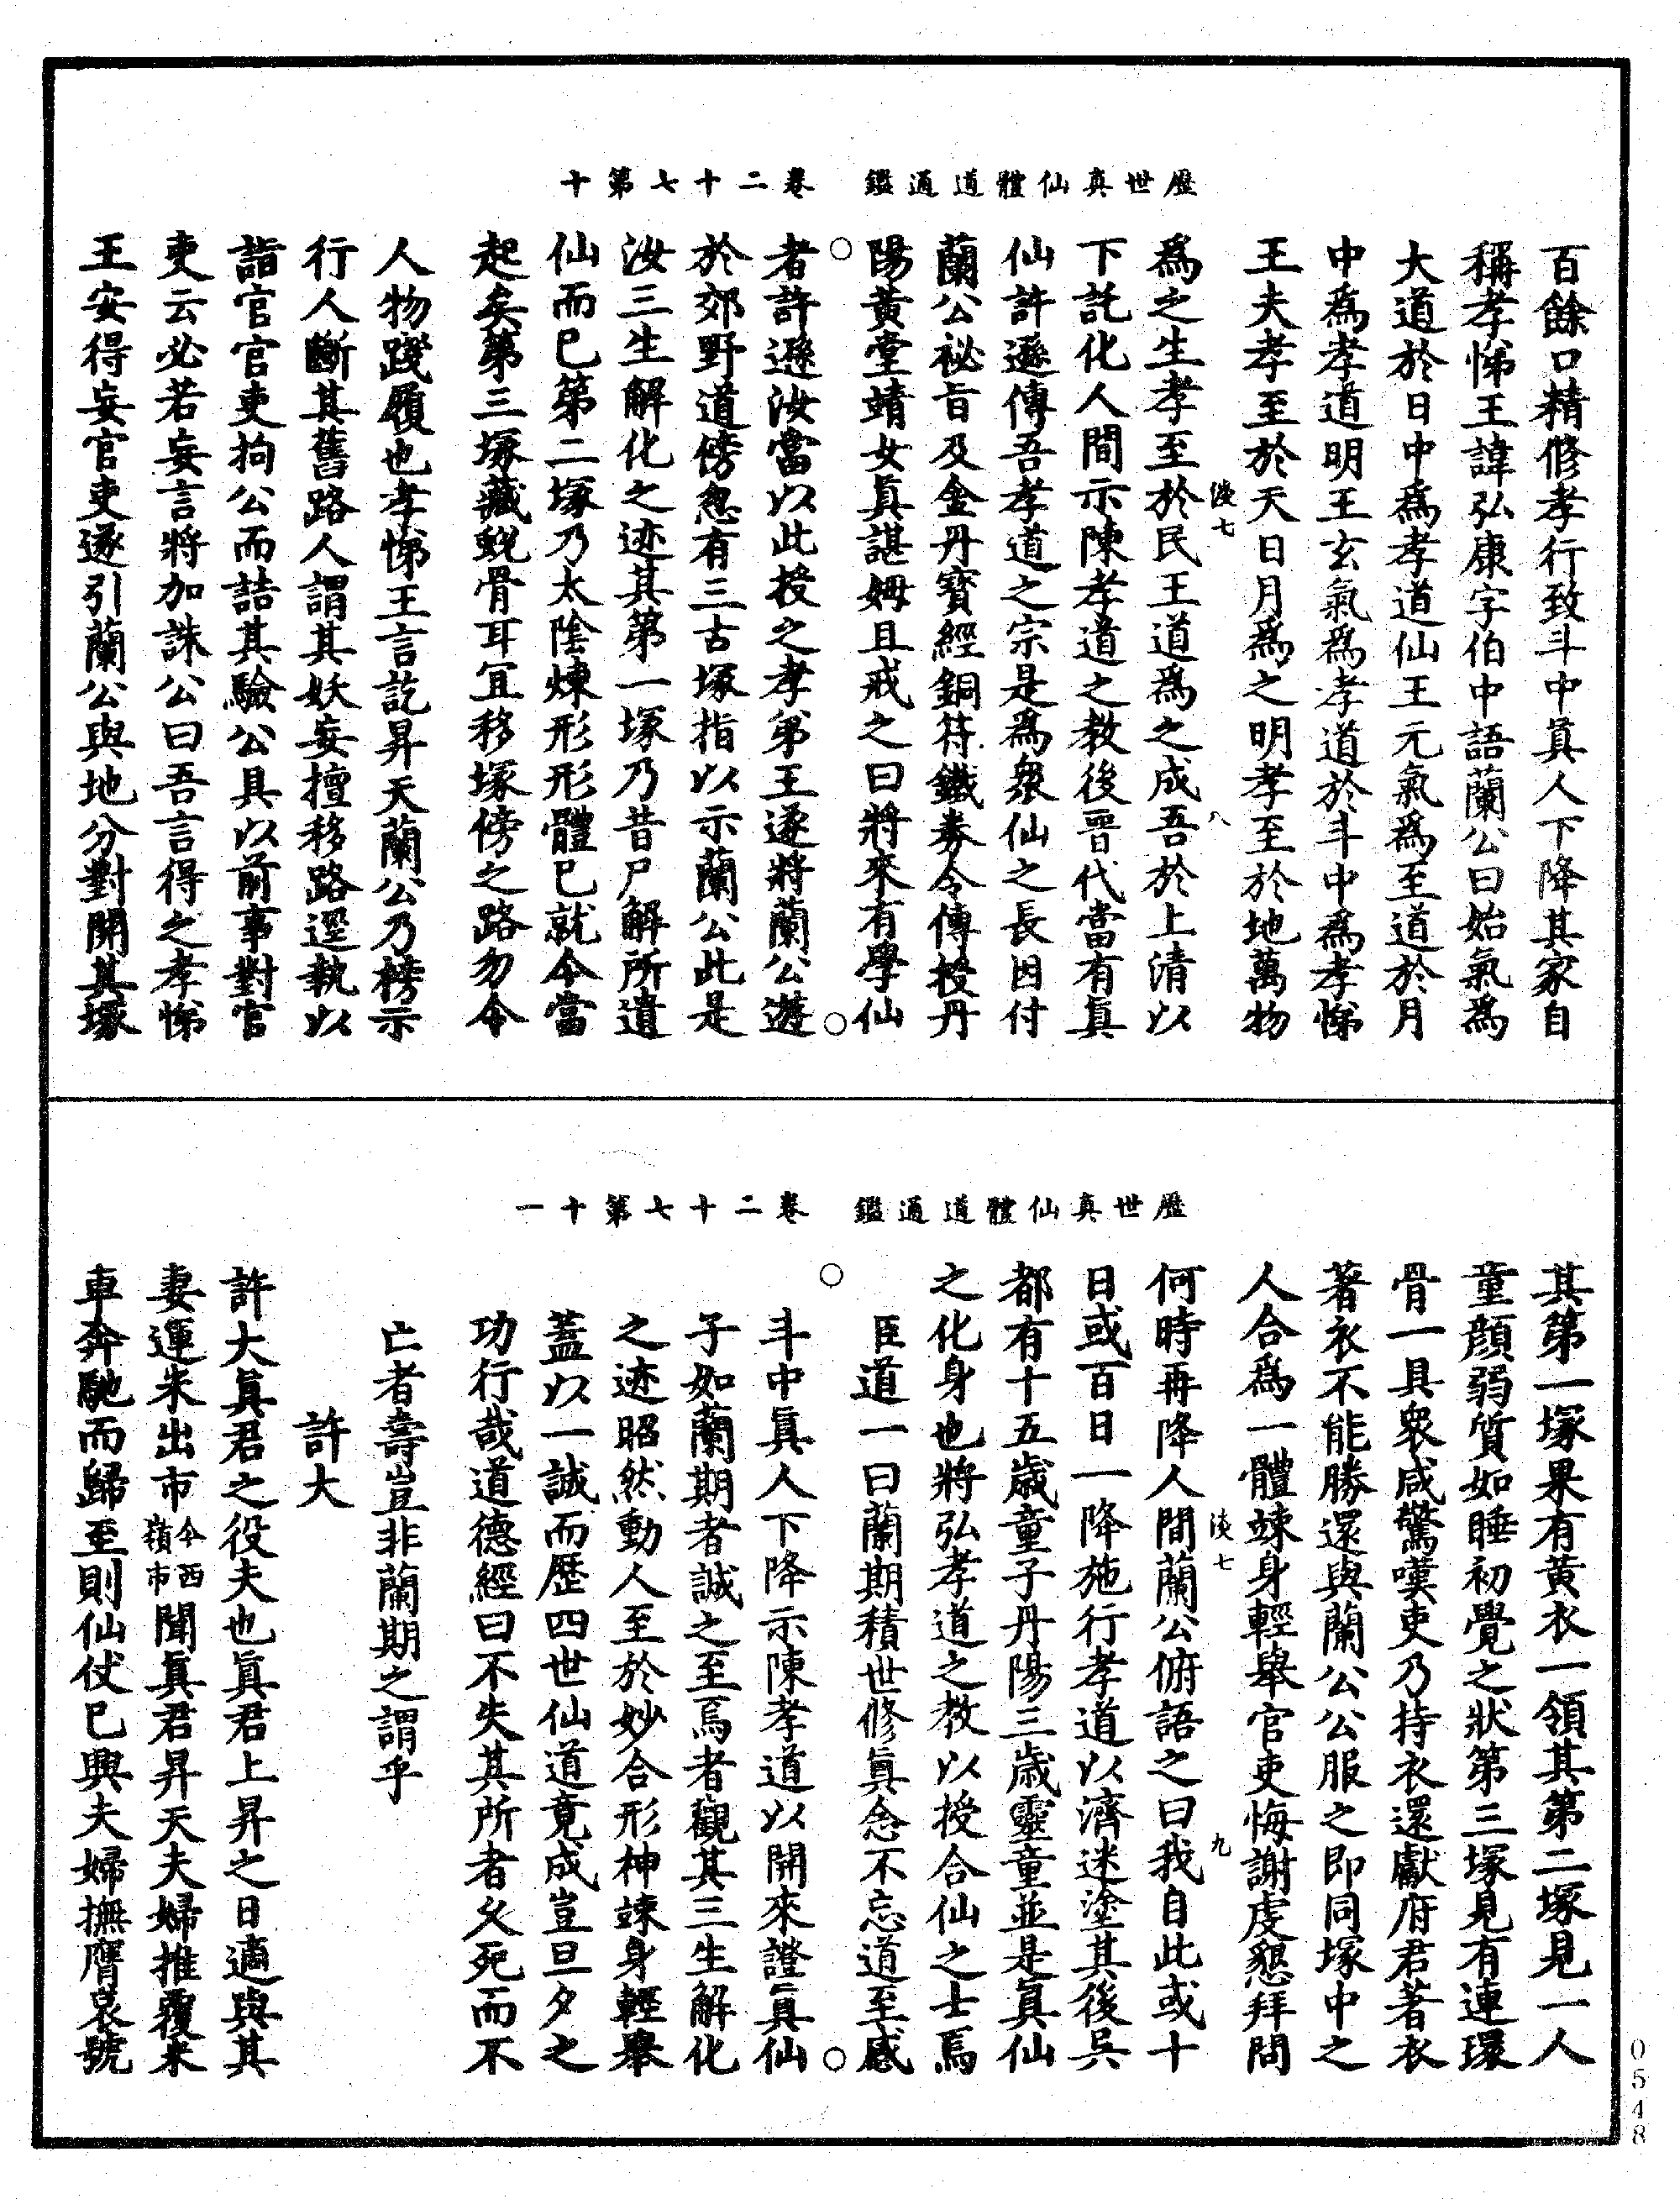 歷世真仙體道通鑑　卷二十七第十
百餘口精修孝行致斗中真人下降其家自
稱孝悌王諱弘康字伯中語蘭公曰始氣爲
大道於日中爲孝道仙王元氣爲至道於月
中爲孝道明王玄氣爲孝道於斗中爲孝悌
王夫孝至於天日月爲之明孝至於地萬物
淡七　八
爲之生孝至於民王道爲之成吾於上清以
下託化人間示陳孝道之教後晉代當有真
仙許遜傳吾孝道之宗是爲衆仙之長因付
蘭公祕旨及金丹寶經銅符鐵券令傳授丹
陽黃堂靖女真諶姆且戒之曰將來有學仙
者許遜汝當以此授之孝弟王遂將蘭公遊
於郊野道傍忽有三古塚指以示蘭公此是
汝三生解化之迹其第一塚乃昔尸解所遺
仙而已第二塚乃太陰煉形形體已就今當
起矣第三塚藏蛻骨耳宜移塚傍之路勿令
人物踐履也孝悌王言訖昇天蘭公乃榜示
行人斷其舊路人謂其妖妄擅移路逕執以
詣官官吏拘公而詰其驗公具以前事對官
吏云必若妄言將加誅公曰吾言得之孝悌
王安得妄官吏遂引蘭公與地分對開其塚
歷世真仙體道通鑑　卷二十七第十一
其第一塚果有黃衣一領其第二塚見一人
童顏弱質如睡初覺之狀第三塚見有連環
骨一具衆咸驚嘆吏乃持衣還獻府君著衣
著衣不能勝還與蘭公公服之即同塚中之
人合爲一體竦身輕舉官吏悔謝虔懇拜問
淡七　九
何時再降人間蘭公俯語之曰我自此或十
日或百日一降施行孝道以濟迷塗其後吳
都有十五歲童子丹陽三歲靈童並是真仙
之化身也將弘孝道之教以授合仙之士焉
臣道一曰蘭期積世修眞念不忘道至感
斗中眞人下降示陳孝道以開來證眞仙
子如蘭期者誠之至焉者觀其三生解化
之迹昭然動人至於妙合形神竦身輕舉
蓋以一誠而歷四世仙道竟成豈旦夕之
功行哉道德經曰不失其所者久死而不
亡者壽豈非蘭期之謂乎
許大
許大眞君之役夫也眞君上昇之日適與其
妻運朱出市今西嶺市聞眞君昇天夫婦推覆米
車奔馳而歸至則仙仗已興夫婦撫膺哀號
0548